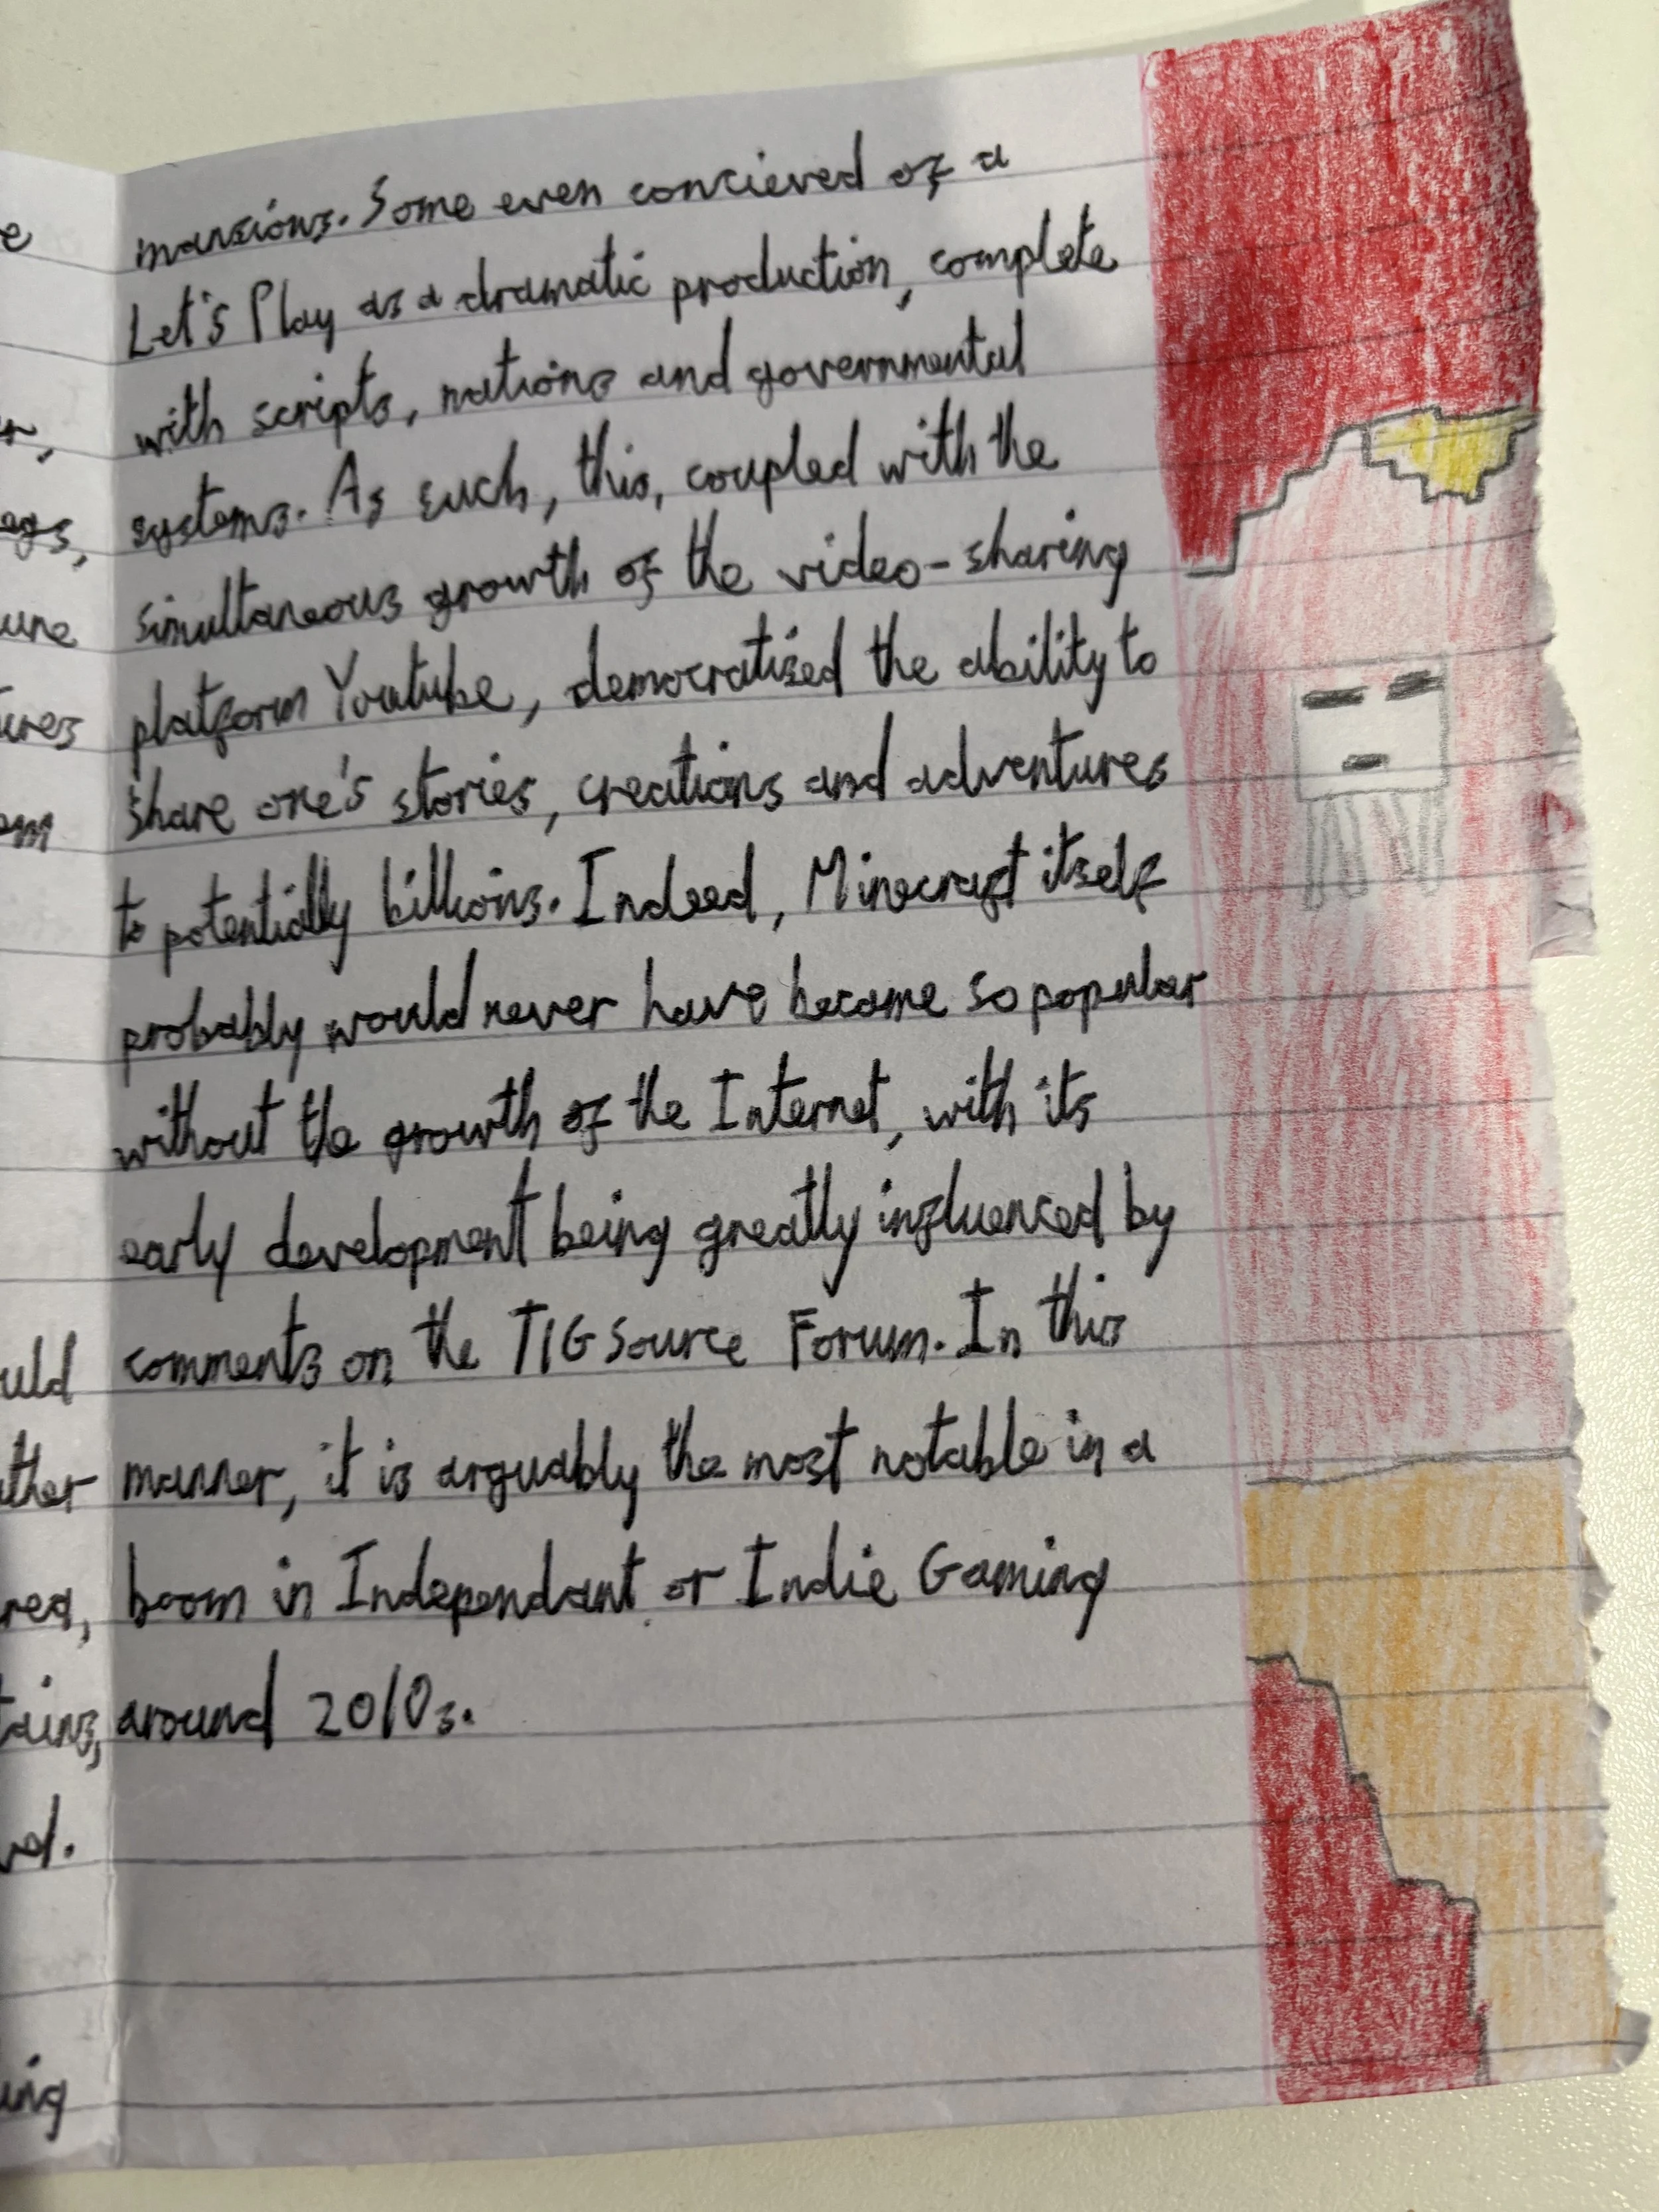 e
r,
ags,
une
ures
om
uld
ther
rea,
tains,
vel.
ing
mansions. Some even concieved of a
Let's Play as a dramatic production, complete
with scripts, nations and governmental
systems. As such, this, coupled with the
simultaneous growth of the video-sharing
platform Youtube, democratised the ability to
share one's stories, creations and adventures
to potentially billions. Indeed, Minecraft itself
probably would never have become so popular
without the growth of the Internet, with its
early development being greatly influenced by
comments on the TIGSource Forum. In this
manner, it is arguably the most notable in a
boom in Independant or Indie Gaming
around 2010s.